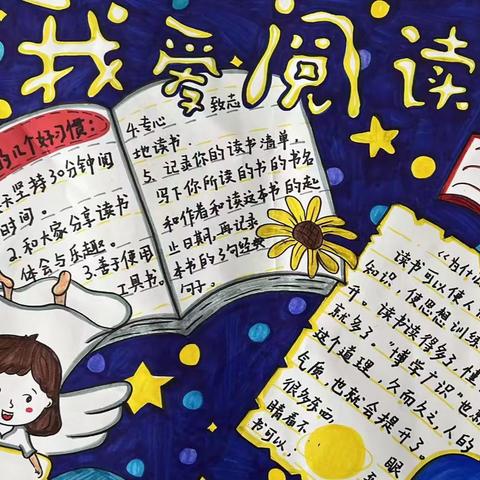 我爱阅读
的几个好习惯：
天坚持30分钟阅
时间。
2.和大家分享读书
体会与乐趣。
3.善于使用
工具书。
4.专心
致志
地读书.
5、记录你的读书清单，
写下你所读的书的书名
和作者和读这本书的起
止日期，再记录
本书的3句经典
句子。
《为什么
读书可以使人
知识，使思想训练
升。读书读得多，懂
就多了。“博学广识”也
这个道理，久而久之，人的
气质，也就会提升了。
很多东西， 眼
睛看不
书可以，